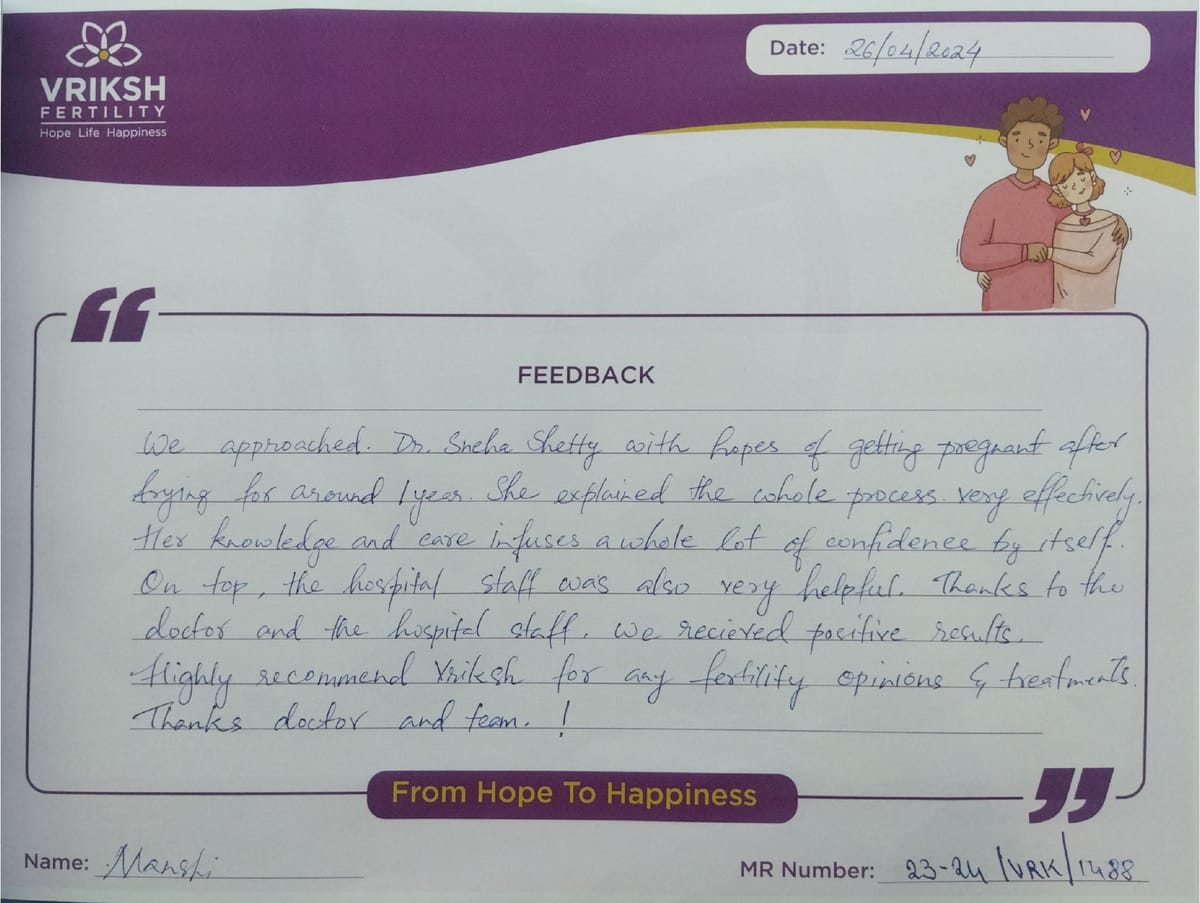 VRIKSH
FERTILITY
Hope Life Happiness
Date: 26/04/2024
FEEDBACK
We approached. Dr. Sneha Shetty with hopes of getting pregnant after
trying for around 1 year. She explained the whole process. very effectively.
Her knowledge and care infuses a whole lot of confidence by itself.
On top, the hospital staff was also very helpful. Thanks to the
doctor and the hospital staff. We recieved positive results.
Highly recommend Vriksh for any fertility opinions & treatments.
Thanks doctor and team. !
From Hope To Happiness
Name: Manshi
MR Number: 23-24/VRK/1488